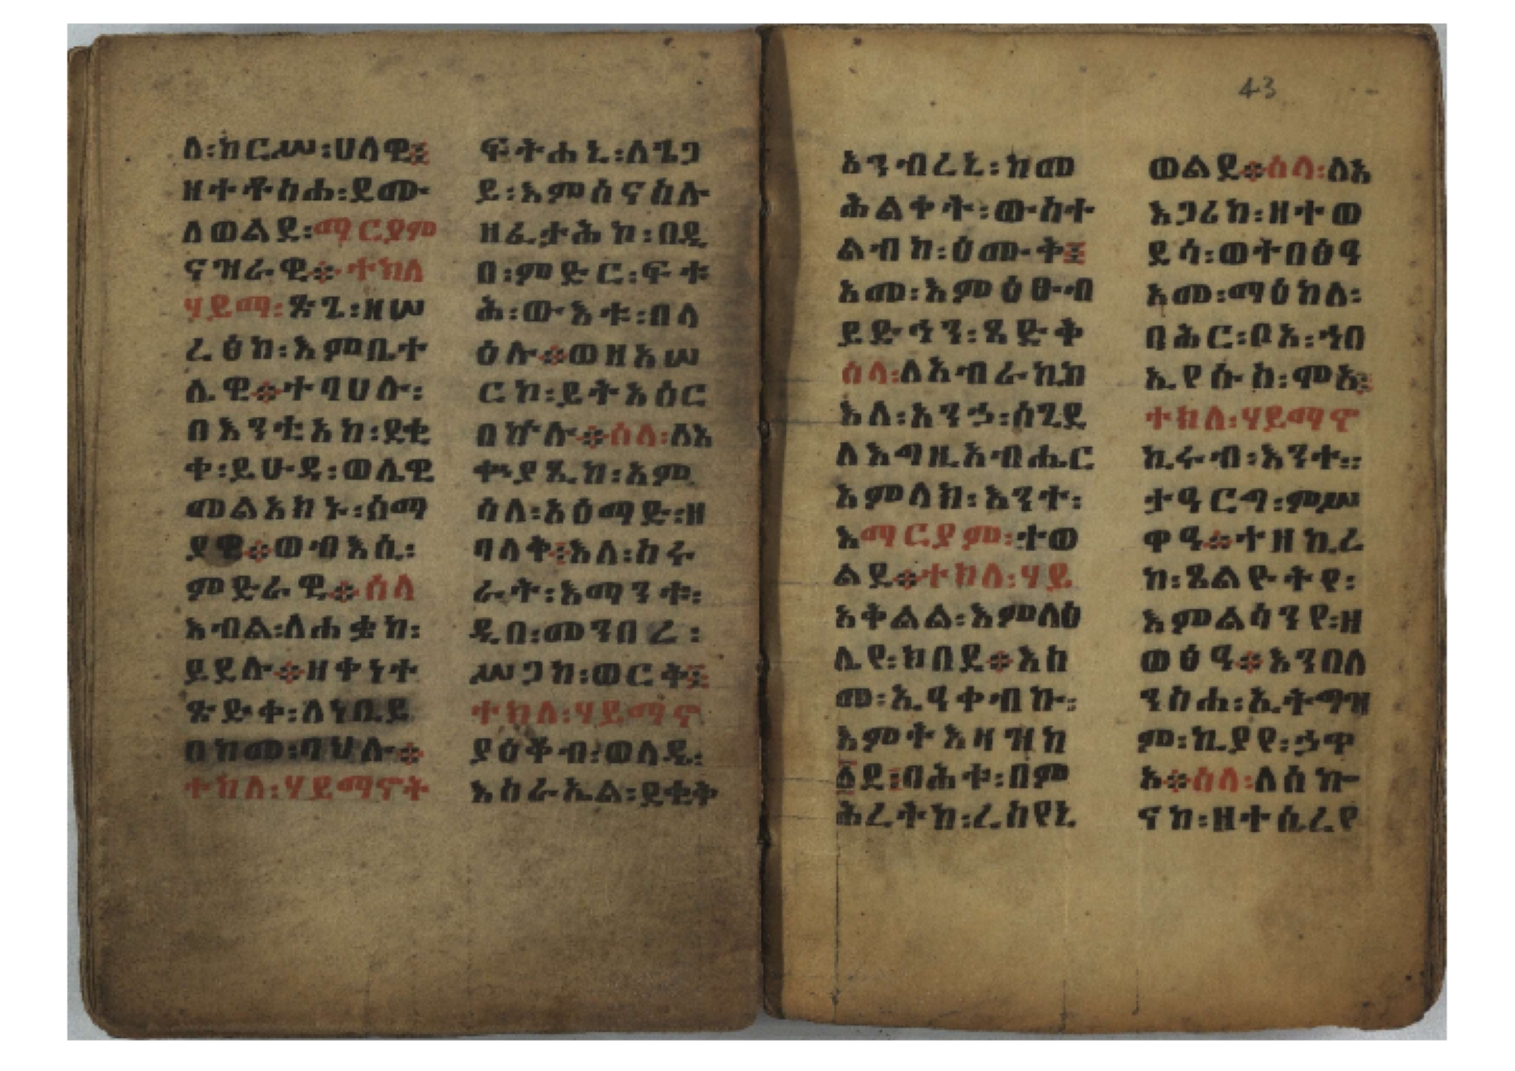 ለ፡ከርሥ፡ሀለዊ፤
ዘተቶስሐ፡ደሙ
ለወልደ፡ማርያም
ናዝራዊ፨ተክለ
ሃይማ፡ጽጌ፡ዘሠ
ረፅከ፡እምቤተ
ሌዊ፨ተባህሉ፡
በእንቲአከ፡ደቂ
ቀ፡ይሁዳ፡ወሌዊ
መልአክኑ፡ሰማ
ያዊ፨ወብእሲ፡
ምድራዊ፨ሰላ
እብል፡ለሐቌከ፡
ይደሉ፨ዘቀነተ
ጽድቀ፡ለነቢይ
በከመ፡ባህሉ፨
ተክለ፡ሃይማኖት
ፍትሐኒ፡ለጌጋ
ይ፡እምሰናስሉ
ዘፈታሕኮ፡በዲ
በ፡ምድር፡ፍቱ
ሕ፡ውእቱ፡በላ
ዕሉ፨ወዘአሠ
ርኮ፡ይትእዕር
በኵሉ፨ሰላ፡ለአ
ቍያጺከ፡አም
ሳለ፡አዕማድ፡ዘ
ባለቅ፤እለ፡ስሩ
ራት፡እማንቱ፡
ዲበ፡መንበረ፡
ሥጋከ፡ወርቅ፤
ተክለ፡ሃይማኖ
ያዕቆብ፡ወላዴ፡
እስራኤል፡ደቂቅ
43
አንብረኒ፡ከመ
ሕልቀት፡ውስተ
ልብከ፡ዕሙቅ፤
አመ፡እምዕፀብ
ይድኅን፡ጻድቅ
ሰላ፡ለአብራኪከ
እለ፡አንኃ፡ሰጊደ
ለእግዚአብሔር
አምላክ፡አንተ፡
እማርያም፡ተወ
ልደ፨ተክለ፡ሃይ
አቅልል፡እምላዕ
ሌየ፡ክበደ፨እስ
መ፡ኢዓቀብኩ፡
እምትእዛዝከ
፩ደ፤በሕቱ፡በም
ሕረትከ፡ረስየኒ
ወልደ፨ሰላ፡ለእ
እጋሪከ፡ዘተወ
ደሳ፡ወትበፅዓ
አመ፡ማዕከለ፡
ባሕር፡ቦአ፡ኀበ
ኢየሱስ፡ሞአ፤
ተክለ፡ሃይማኖ
ኪሩብ፡አንተ፡
ታዓርግ፡ምሥ
ዋዓ፨ተዘኪረ
ከ፡ጼልዮትየ፡
እምልሳንየ፡ዘ
ወፅዓ፨እንበለ
ንስሐ፡ኢትግዝ
ም፡ኪያየ፡ኃጥ
አ፨ሰላ፡ለሰኰ
ናከ፡ዘተሴረየ